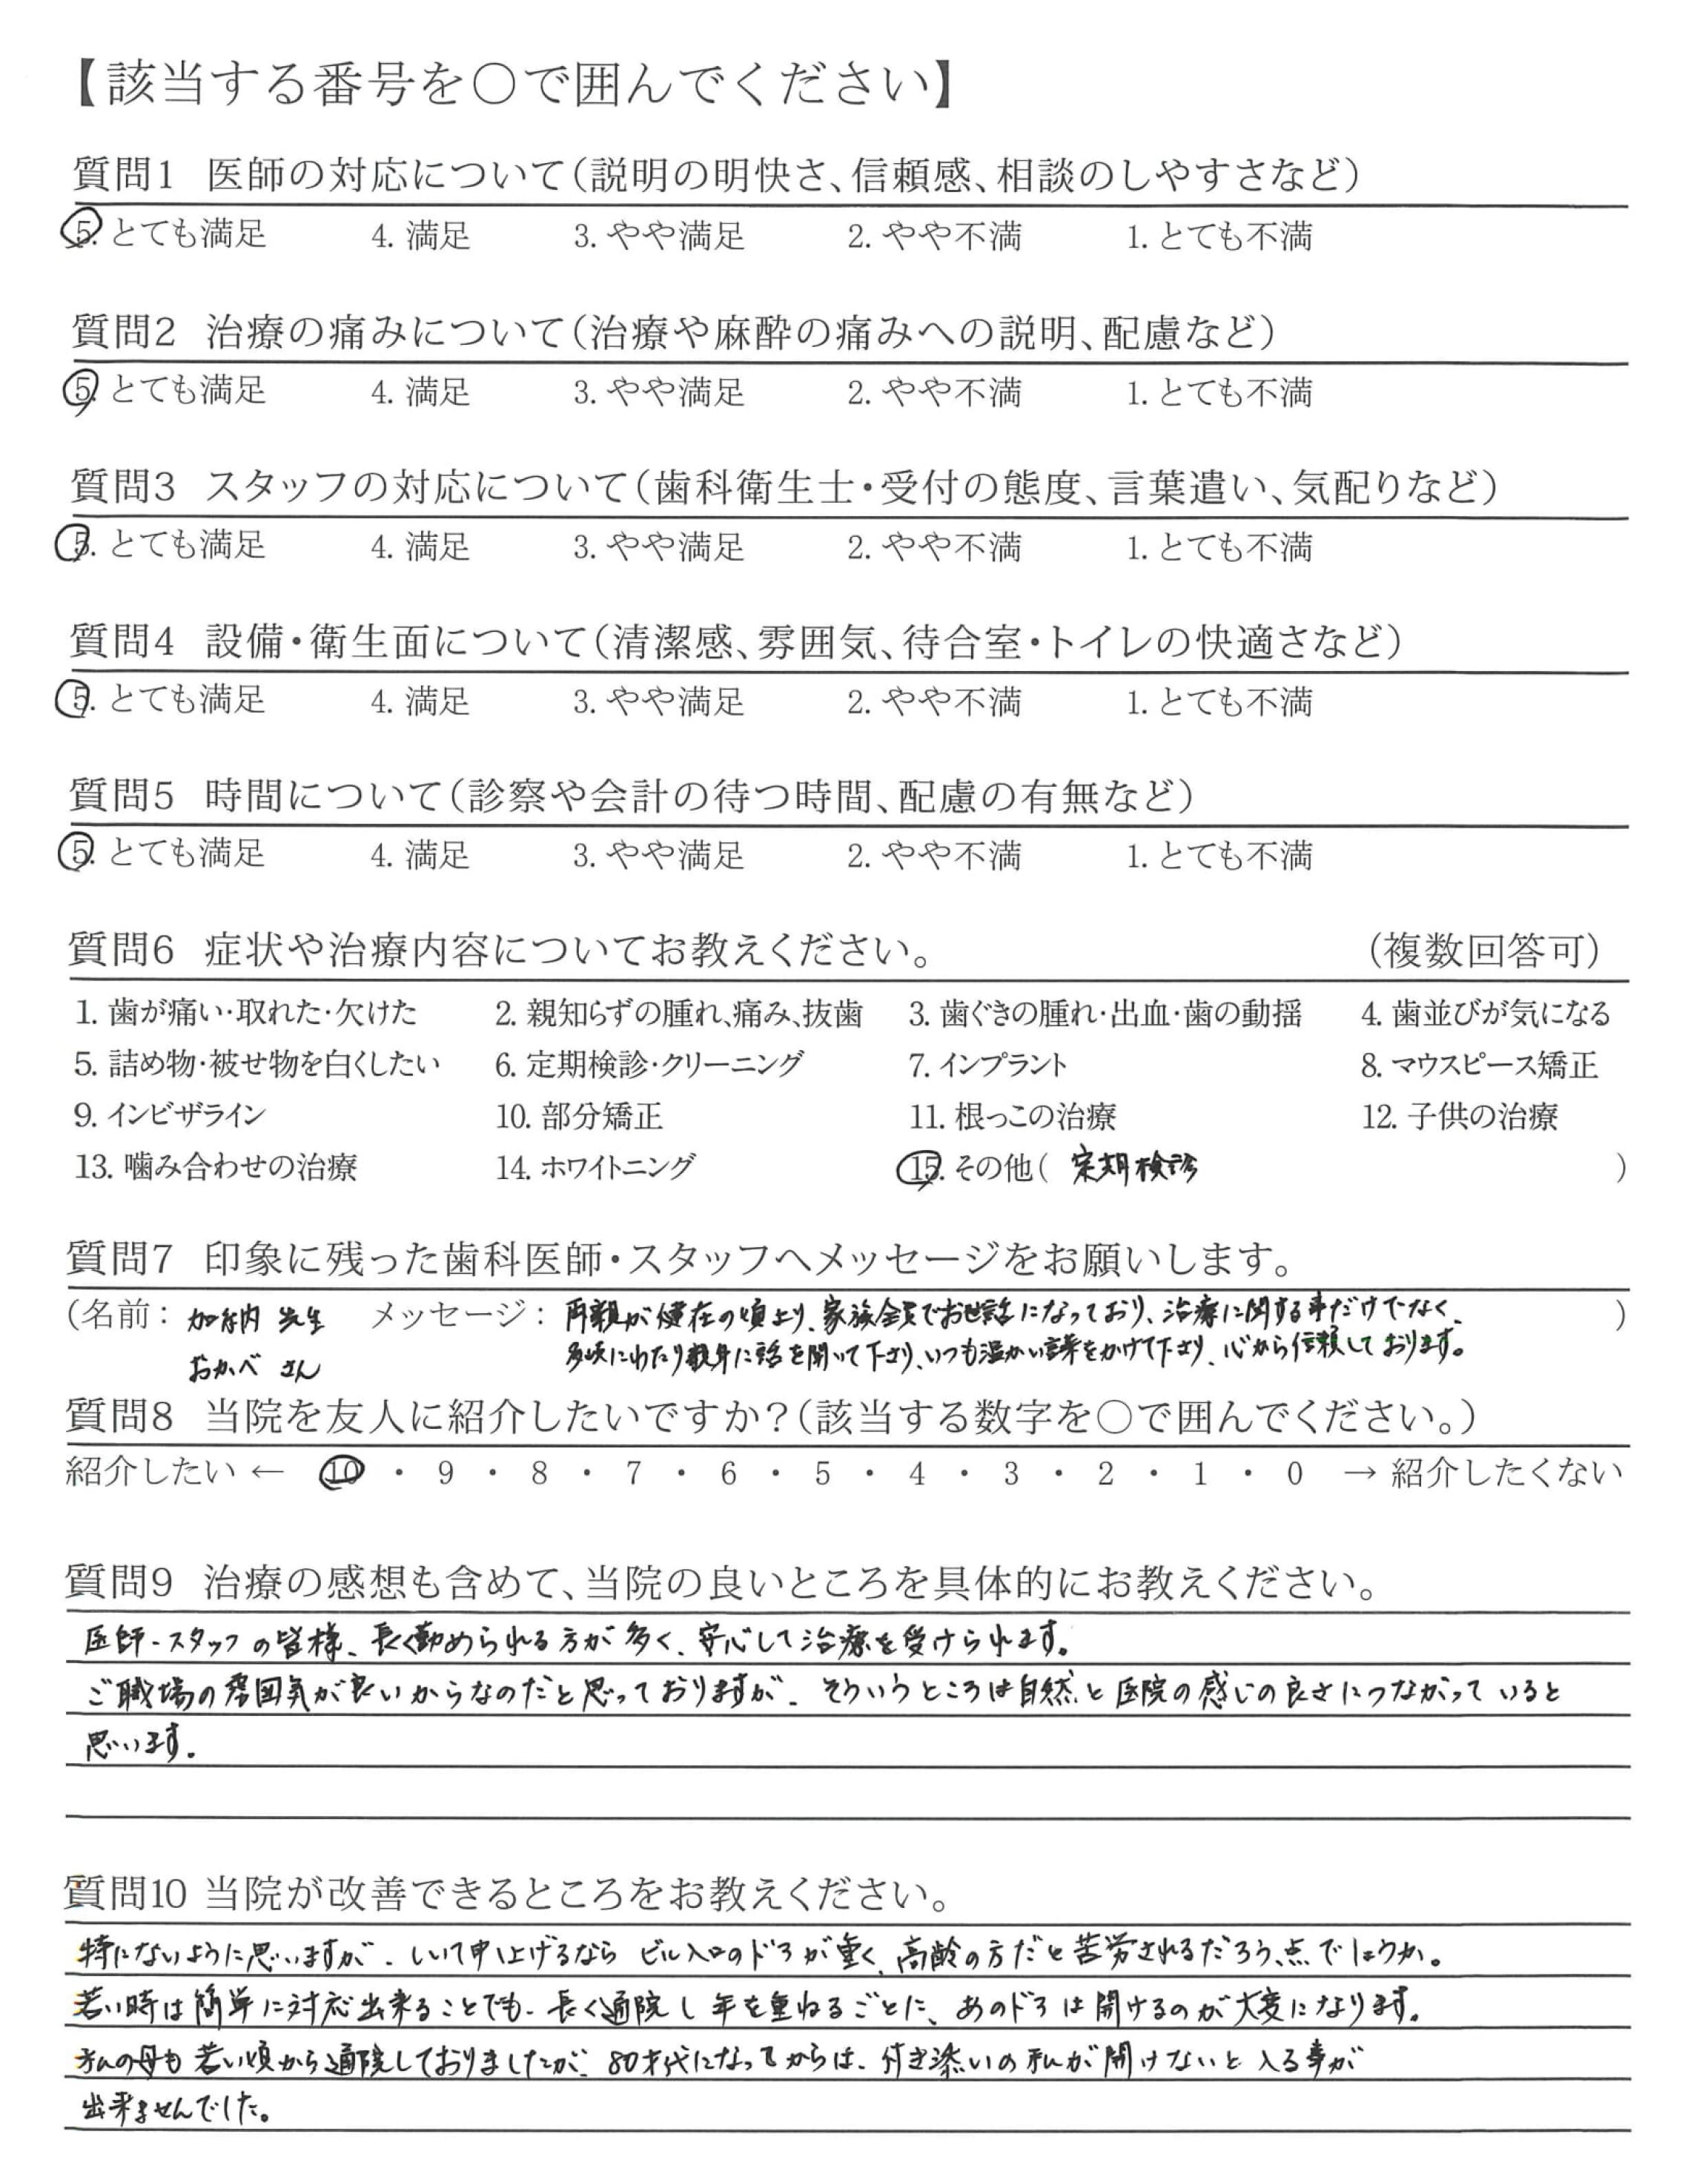 【該当する番号を〇で囲んでください】
質問1 医師の対応について（説明の明快さ、信頼感、相談のしやすさなど）
5. とても満足 4. 満足 3. やや満足 2. やや不満 1. とても不満
質問2 治療の痛みについて（治療や麻酔の痛みへの説明、配慮など）
5. とても満足 4. 満足 3. やや満足 2. やや不満 1. とても不満
質問3 スタッフの対応について（歯科衛生士・受付の態度、言葉遣い、気配りなど）
5. とても満足 4. 満足 3. やや満足 2. やや不満 1. とても不満
質問4 設備・衛生面について（清潔感、雰囲気、待合室・トイレの快適さなど）
5. とても満足 4. 満足 3. やや満足 2. やや不満 1. とても不満
質問5 時間について（診察や会計の待つ時間、配慮の有無など）
5. とても満足 4. 満足 3. やや満足 2. やや不満 1. とても不満
質問6 症状や治療内容についてお教えください。 （複数回答可）
1. 歯が痛い・取れた・欠けた 2. 親知らずの腫れ、痛み、抜歯 3. 歯ぐきの腫れ・出血・歯の動揺 4. 歯並びが気になる
5. 詰め物・被せ物を白くしたい 6. 定期検診・クリーニング 7. インプラント 8. マウスピース矯正
9. インビザライン 10. 部分矯正 11. 根っこの治療 12. 子供の治療
13. 噛み合わせの治療 14. ホワイトニング 15. その他（ 定期検診 ）
質問7 印象に残った歯科医師・スタッフへメッセージをお願いします。
（名前： 加納 先生 メッセージ： 両親が健在の頃より、家族全員でお世話になっており、治療に関する事だけでなく、 ）
おかべ さん 多岐にわたり親身に話を聞いて下さり、いつも温かい言葉をかけて下さり、心から信頼しております。
質問8 当院を友人に紹介したいですか？（該当する数字を〇で囲んでください。）
紹介したい ← 10 ・ 9 ・ 8 ・ 7 ・ 6 ・ 5 ・ 4 ・ 3 ・ 2 ・ 1 ・ 0 → 紹介したくない
質問9 治療の感想も含めて、当院の良いところを具体的にお教えください。
医師・スタッフの皆様、長く勤められる方が多く、安心して治療を受けられます。
ご職場の雰囲気が良いからなのだと思っておりますが、そういうところは自然と医院の感じの良さにつながっていると
思います。
質問10 当院が改善できるところをお教えください。
特にないように思いますが、しいて申し上げるなら ビル入口のドアが重く、高齢の方だと苦労されるだろう点でしょうか。
若い時は簡単に対応出来ることでも、長く通院し年を重ねるごとに、あのドアは開けるのが大変になります。
私の母も若い頃から通院しておりましたが、80才代になってからは、付き添いの私が開けないと入る事が
出来ませんでした。